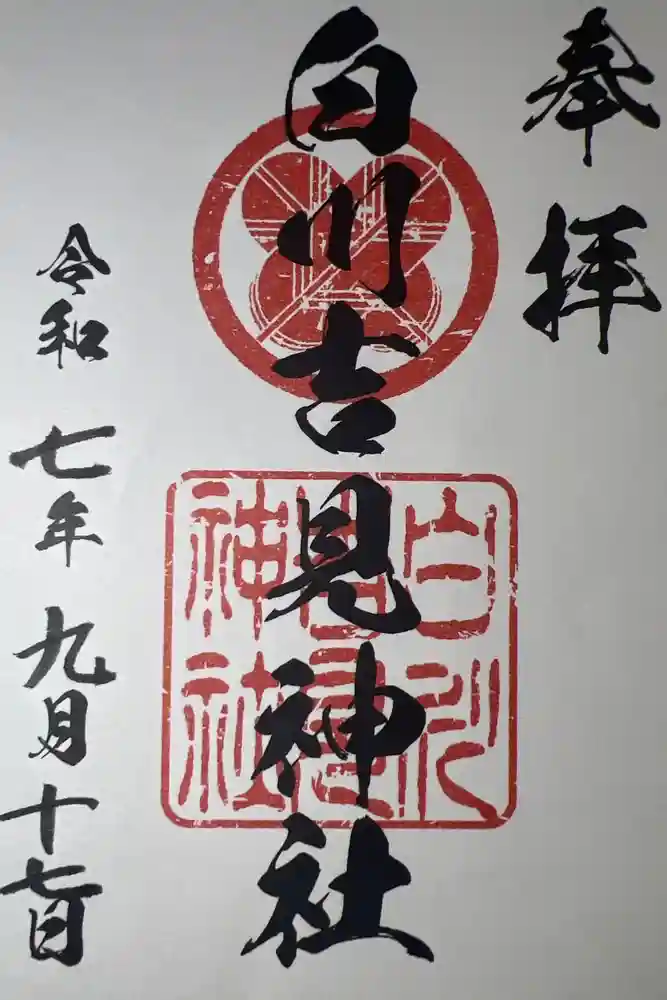 奉拝
白川吉見神社
白川
吉見
神社
令和七年九月十七日